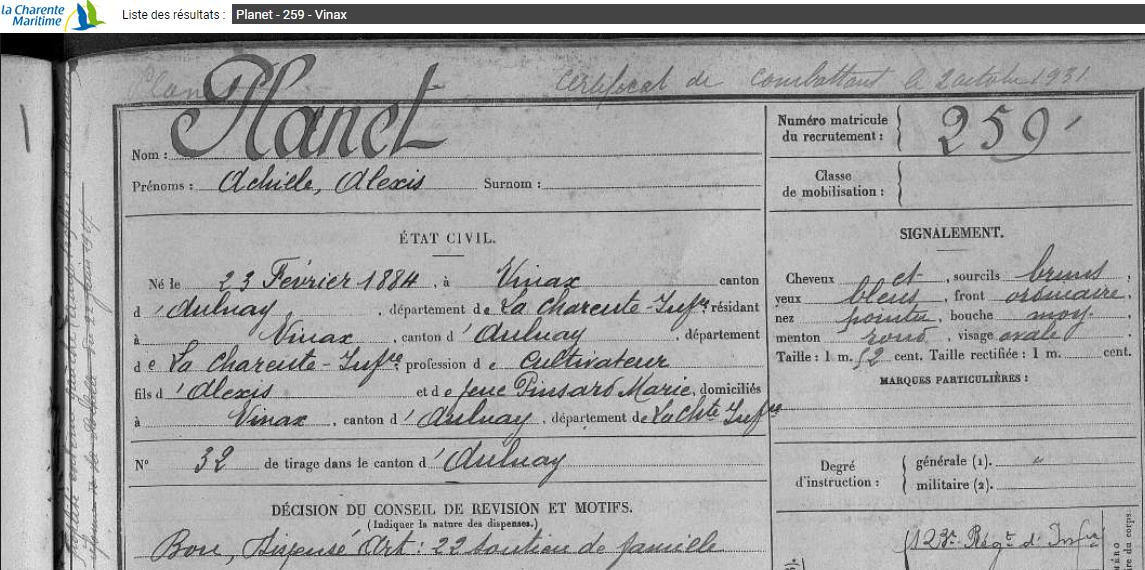 la Charente
Maritime
Liste des résultats : Planet - 259 - Vinax
Certificat de combattant le 2 octobre 1931
Planet
Nom :
Prénoms : Achille, Alexis Surnom :
Numéro matricule
du recrutement : 259
Classe
de mobilisation :
ÉTAT CIVIL.
Né le 23 Février 1884, à Vinax canton
d'Aulnay, département de La Charente-Infre résidant
à Vinax, canton d'Aulnay, département
de La Charente-Infre profession de Cultivateur
fils d'Alexis et de feue Pinsard Marie, domiciliés
à Vinax, canton d'Aulnay, département de La Chte Infre
N° 32 de tirage dans le canton d'Aulnay
DÉCISION DU CONSEIL DE REVISION ET MOTIFS.
(Indiquer la nature des dispenses.)
Bon, Dispensé Art : 22 soutien de famille
SIGNALEMENT.
Cheveux et, sourcils bruns,
yeux bleus, front ordinaire,
nez pointu, bouche moy.,
menton rond, visage ovale
Taille : 1 m. 52 cent. Taille rectifiée : 1 m. cent.
MARQUES PARTICULIÈRES :
Degré
d'instruction :
générale (1). "
militaire (2).
123e Régt d'Infie
NUMÉRO